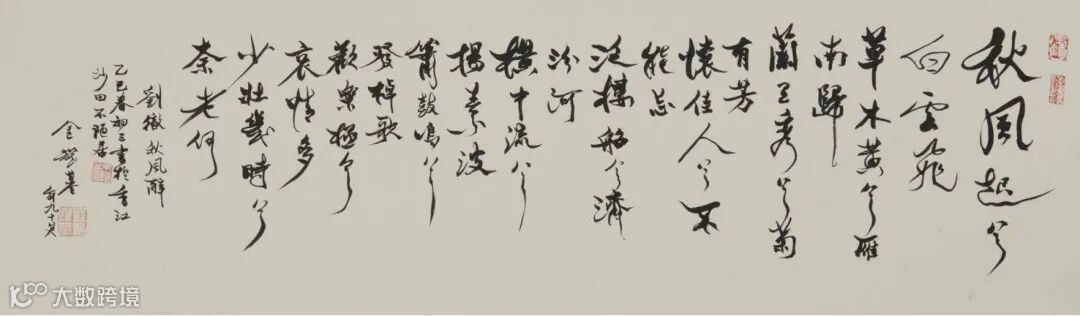 秋風起兮
白雲飛
草木黃兮雁
南歸
蘭有秀兮菊
有芳
懷佳人兮不
能忘
泛樓船兮濟
汾河
橫中流兮
揚素波
簫鼓鳴兮
發棹歌
歡樂極兮
哀情多
少壯幾時兮
奈老何
劉徹 秋風辭
乙巳春初三書於香江
沙田不陋居
金耀基 年九十
大数跨境